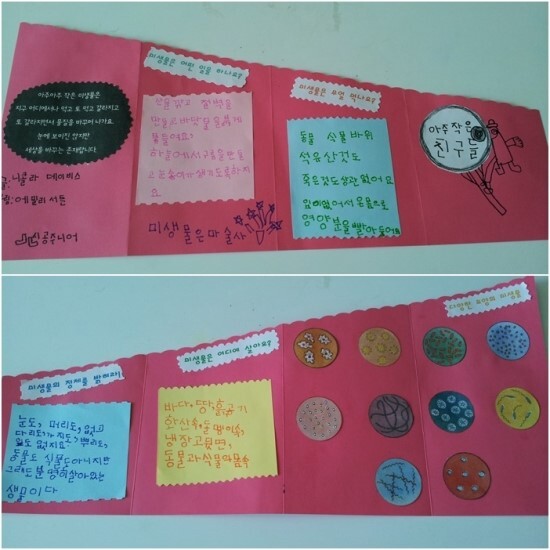 아주아주 작은 미생물은
지구 어디에서나 먹고 또 먹고 갈라지고
또 갈라지면서 물질을 바꾸어 나가요.
눈에 보이진 않지만
세상을 바꾸는 존재랍니다.
글:니콜라 데이비스
그림:에밀리 서튼
시공주니어
미생물은 어떤 일을 하나요?
산을깎고 절벽을
만들고바닷물을 게
물들여요!
하늘에서구름을만들
고눈송이가생기도록하지
요
미생물은마술사
미생물은 무얼 먹나요?
동물 식물 바위
석유산것도
죽은것도상관없어요
입이없어서온몸으로
영양분을빨아들여요
아주작은
친구들
미생물의 정체를 밝혀라!
눈도, 머리도, 없고
다리도,
입도 없지요
동물도 식물도아니지만
그래도분명히살아있는
생물이다
미생물은 어디에 살아요?
바다,땅,흙,공기
냉장고뒷면,
동물과식물의몸속
다양한 모양의 미생물